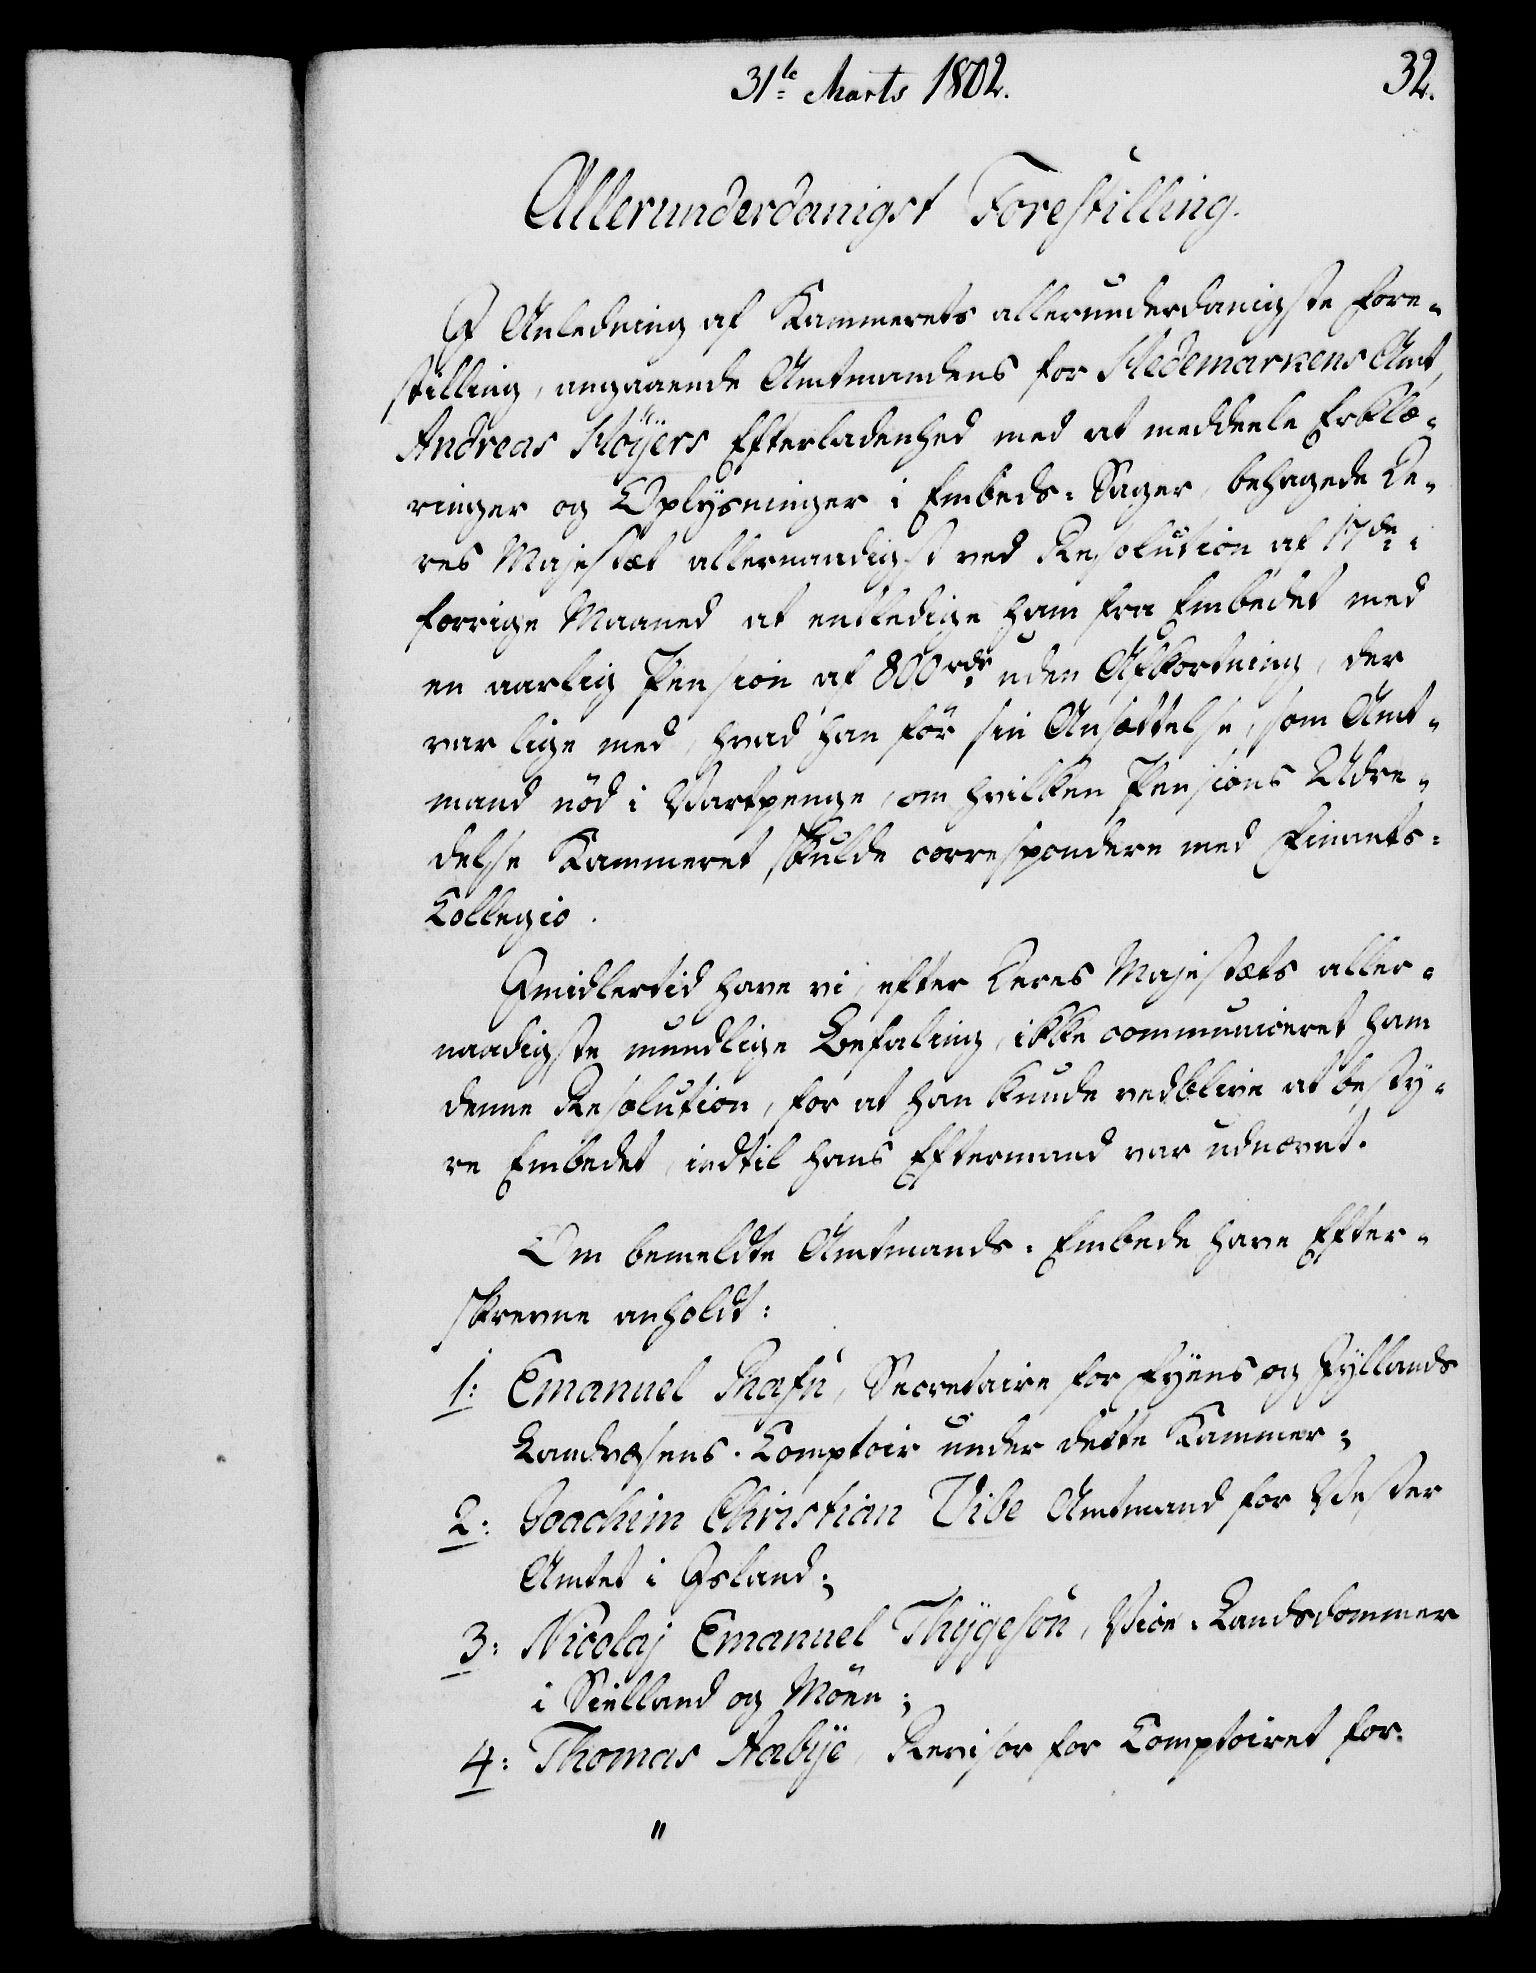 31te Marts 1802.
32.
Allerunderdanigst Forestilling.
I Anledning af Kammerets allerunderdanigste Fore-
stilling, angaaende Amtmandens for Hedemarkens Amt,
Andreas Höÿers Efterladenhed med at meddeele Erklæ-
ringer og Oplysninger i Embeds-Sager, behagede De-
res Majestæt allernaadigst ved Resolution af 17de i
forrige Maaned at entledige ham fra Embedet med
en aarlig Pension af 800 rdr uden Afkortning, der
var lige med, hvad han før sin Ansættelse, som Amt-
mand nød i Vartpenge, om hvilken Pensions Udre-
delse Kammeret skulde correspondere med Finants-
Collegio.
Imidlertid have vi, efter Deres Majestæts aller-
naadigste mundlige Befaling, ikke communiceret ham
denne Resolution, for at han kunde vedblive at besty-
re Embedet, indtil hans Eftermand var udnævnt.
Om bemeldte Amtmands-Embede have Efter-
skrevne anholdt:
1: Emanuel Thafn, Secretaire for Fyens og Jyllands
Landvæsens-Comptoir under dette Kammer;
2: Joachim Christian Vibe Amtmand for Vester
Amtet i Island;
3: Nicolaj Emanuel Thÿgeson, Vice-Landsdommer
i Siælland og Möen;
4: Thomas Aabÿe, Revisor for Comptoiret for
"